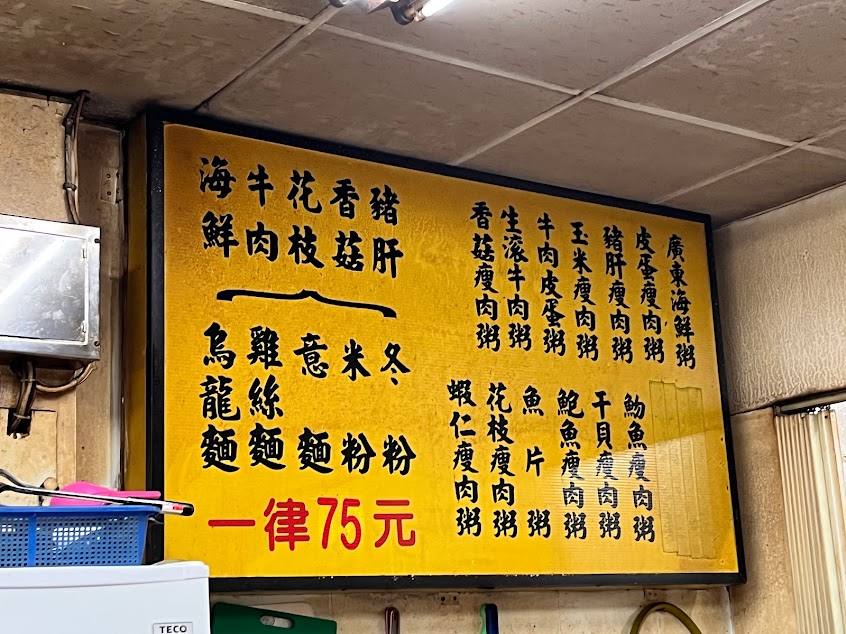 廣東海鮮粥
皮蛋瘦肉粥
豬肝瘦肉粥
玉米瘦肉粥
牛肉皮蛋粥
生滾牛肉粥
香菇瘦肉粥
魩魚瘦肉粥
干貝瘦肉粥
鮑魚瘦肉粥
魚片粥
花枝瘦肉粥
蝦仁瘦肉粥
豬肝
香菇
花枝
牛肉
海鮮
冬粉
米粉
意麵
雞絲麵
烏龍麵
一律75元
TECO